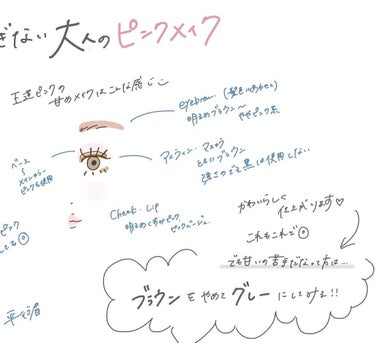 ぎない 大人のピンクメイク
王道ピンクの
甘めメイクはこんな感じ
eyebrow (髪色に合わせて)
明るめブラウン〜
ややピンク系
ベース
メインカラー
ピンクを使用
アイライン・マスカラ
ともにブラウン
強さのでる黒は使用しない
cheek・Lip
明るめくすみピンク
ピンクベージュ
ピンク
しても◎
平行眉
かわいらしく
仕上がります♡
これもこれで◎
でも甘いの苦手だなって方は…
ブラウンをやめてグレーにしてみて!!